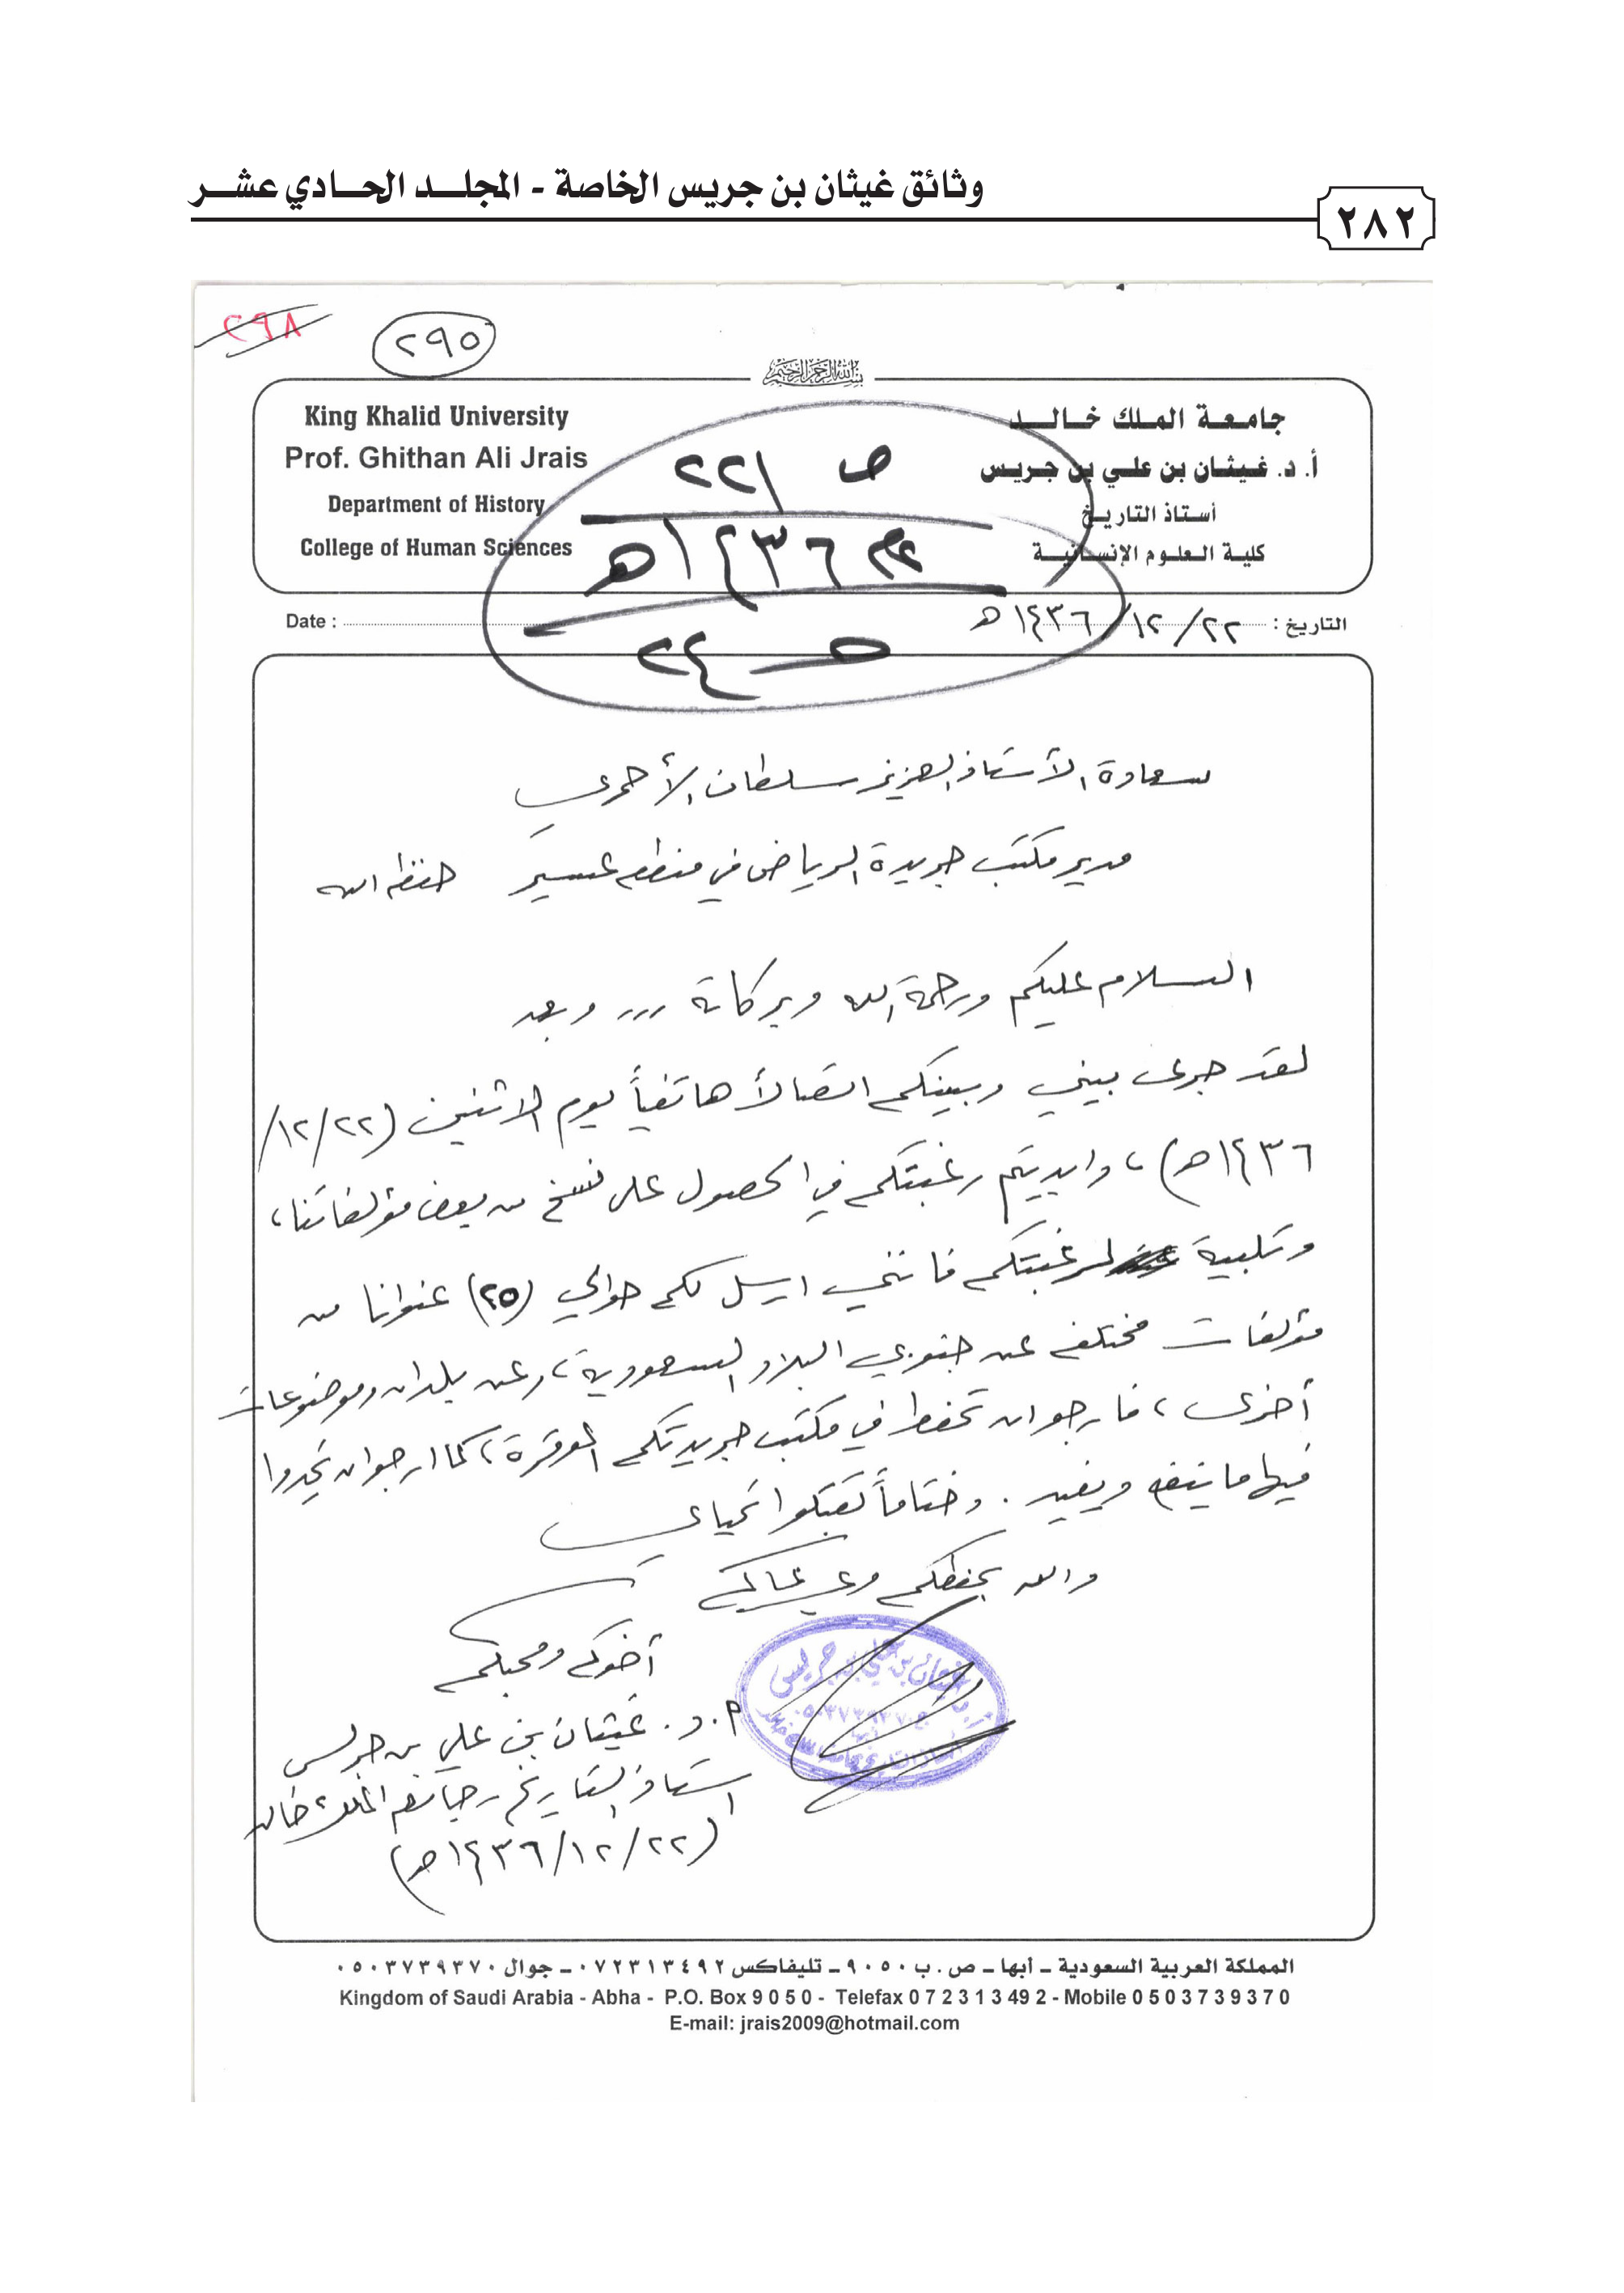 وثائق غيثان بن جريس الخاصة - المجلد الحادي عشر
٢٨٢
٢٩٨
٢٩٥
بسم الله الرحمن الرحيم
King Khalid University
Prof. Ghithan Ali Jrais
Department of History
College of Human Sciences
جامعة الملك خالد
أ. د. غيثان بن علي بن جريس
أستاذ التاريخ
كلية العلوم الإنسانية
ص ٢٢١
١٤٣٦هـ
٢٤
Date :
التاريخ : ٢٢/١٢/١٤٣٦هـ
سعادة الأستاذ العزيز سلطان الأحمري
مدير مكتب جريدة الرياض في منطقة عسير حفظه الله
السلام عليكم ورحمة الله وبركاته ،،، وبعد
لقد جرى بيني وبينكم اتصالاً هاتفياً يوم الاثنين (٢٢/١٢/
١٤٣٦هـ)، وابديتم رغبتكم في الحصول على نسخ من بعض مؤلفاتنا،
وتلبية لرغبتكم فانني ارسل لكم حوالي (٢٥) عنوانا من
مؤلفات مختلفة عن جنوبي البلاد السعودية، وعن بلدان وموضوعات
أخرى، فارجو ان تحفظ في مكتب جريدتكم الموقرة، كما ارجو ان تجدوا
فيها ما ينفع ويفيد. وختاماً تقبلوا تحياتي
والله يحفظكم ويرعاكم
أخوكم ومحبكم
أ.د. غيثان بن علي بن جريس
استاذ التاريخ بجامعة الملك خالد
(٢٢/١٢/١٤٣٦هـ)
غيثان بن علي بن جريس
المملكة العربية السعودية - أبها - ص . ب ٩٠٥٠ - تليفاكس ٠٧٢٣١٣٤٩٢ - جوال ٠٥٠٣٧٣٩٣٧٠
Kingdom of Saudi Arabia - Abha - P.O. Box 9 0 5 0 - Telefax 0 7 2 3 1 3 49 2 - Mobile 0 5 0 3 7 3 9 3 7 0
E-mail: jrais2009@hotmail.com